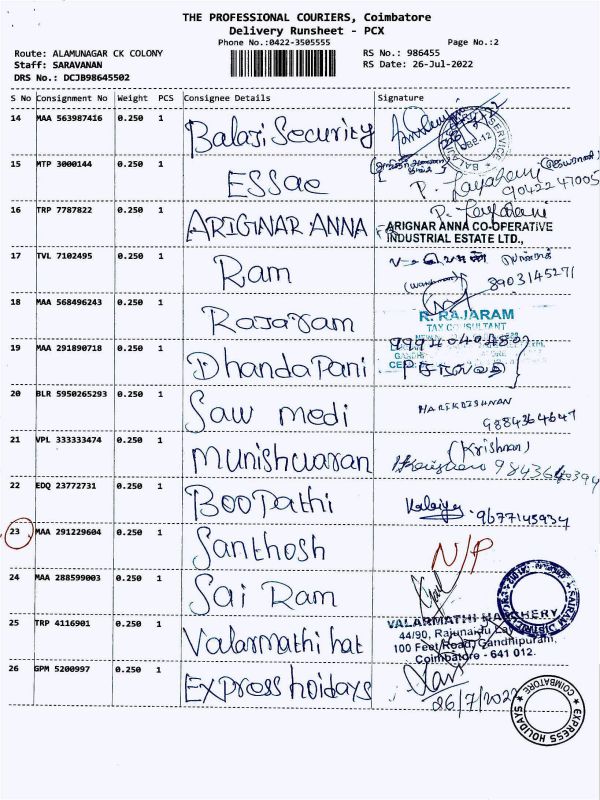 THE PROFESSIONAL COURIERS, Coimbatore
Delivery Runsheet - PCX
Phone No.:0422-3505555
Page No.:2
Route: ALAMUNAGAR CK COLONY
RS No.: 986455
Staff: SARAVANAN
RS Date: 26-Jul-2022
DRS No.: DCJB98645502
S No Consignment No Weight PCS Consignee Details Signature
14 MAA 563987416 0.250 1 Balaji Security
15 MTP 3000144 0.250 1 ESSae
9042247005
16 TRP 7787822 0.250 1 ARIGNAR ANNA
ARIGNAR ANNA CO-OPERATIVE
INDUSTRIAL ESTATE LTD.,
17 TVL 7102495 0.250 1 Ram
8903145271
18 MAA 568496243 0.250 1 Rajaram
R. RAJARAM
TAX CONSULTANT
19 MAA 291890718 0.250 1 Dhandapani
20 BLR 5950265293 0.250 1 Saw medi HARIKRISHNAN
9884364647
21 VPL 333333474 0.250 1 Munishwaran (Krishnan)
22 EDQ 23772731 0.250 1 BooPathi 9677145934
23 MAA 291229604 0.250 1 Santhosh N/P
24 MAA 288599003 0.250 1 Sai Ram
25 TRP 4116901 0.250 1 Valarmathi hat
VALARMATHI
44/90, Rajunaidu
100 Feet Road, Gandhipuram,
Coimbatore - 641 012.
26 GPM 5200997 0.250 1 Express hoidays
26/7/2022
EXPRESS HOLIDAYS COIMBATORE